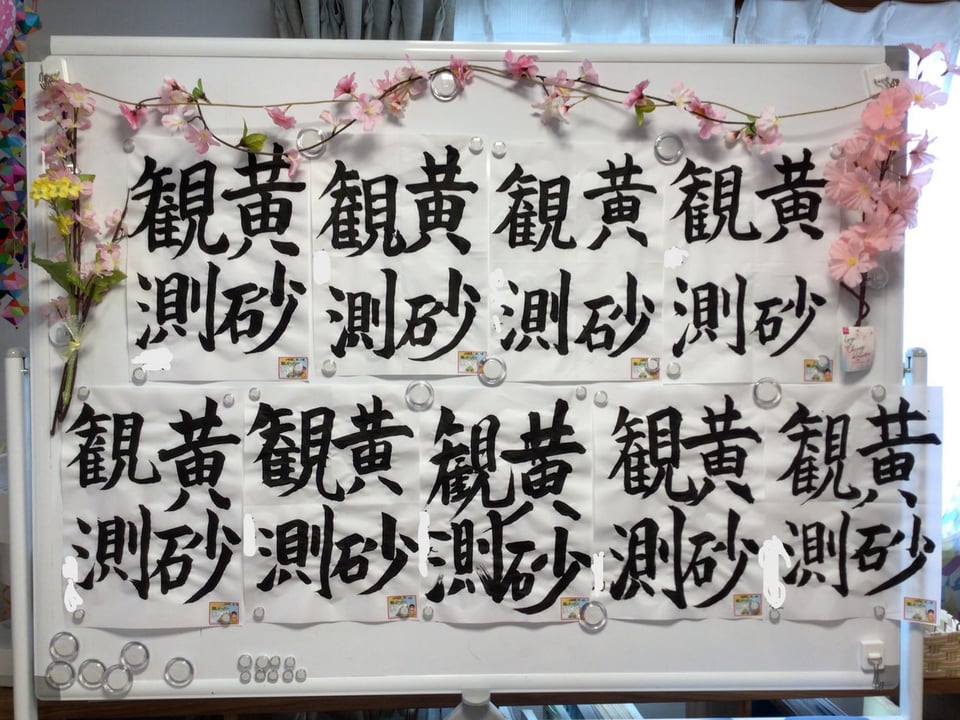 黄砂
観測
黄砂
観測
黄砂
観測
黄砂
観測
黄砂
観測
黄砂
観測
黄砂
観測
黄砂
観測
黄砂
観測